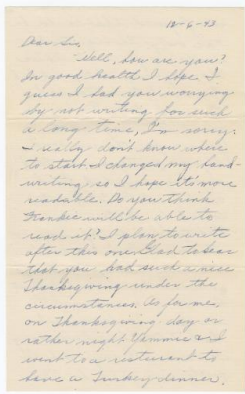 12-6-43
Dear Sis,
Well, how are you?
In good health I hope. I
guess I had you worrying
by not writing for such
a long time, I'm sorry.
I really don't know where
to start. I changed my hand-
writing so I hope it's more
readable. Do you think
Frankie will be able to
read it? I plan to write
after this one. Glad to hear
that you had such a nice
Thanksgiving under the
circumstances. As for me,
on Thanksgiving day or
rather night Yammie or I
went to a restaurant to
have a Turkey dinner.